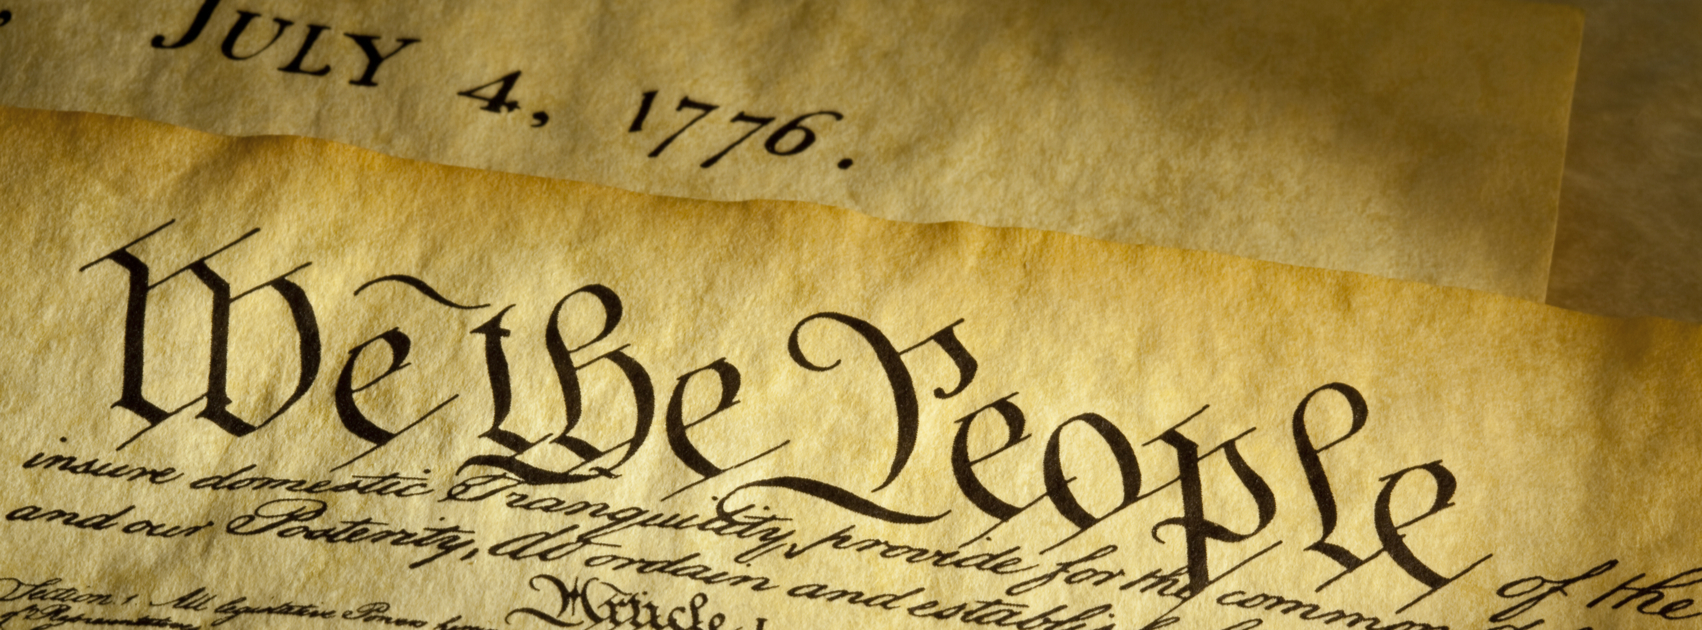 JULY 4, 1776.
We the People of the
insure domestic Tranquility, provide for the common
and our Posterity, do ordain and establish
Article I
Section 1 All legislative Powers
of Representatives